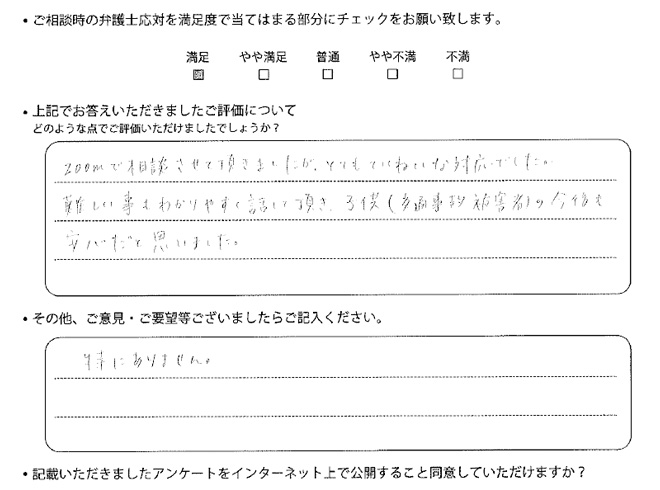 ・ご相談時の弁護士応対を満足度で当てはまる部分にチェックをお願い致します。
満足 やや満足 普通 やや不満 不満
・上記でお答えいただきましたご評価について
どのような点でご評価いただけましたでしょうか？
zoomで相談させて頂きましたが、とてもていねいな対応でした。
難しい事もわかりやすく話して頂き、子供(交通事故被害者)の今後も
安心だと思いました。
・その他、ご意見・ご要望等ございましたらご記入ください。
特にありません。
・記載いただきましたアンケートをインターネット上で公開すること同意していただけますか？